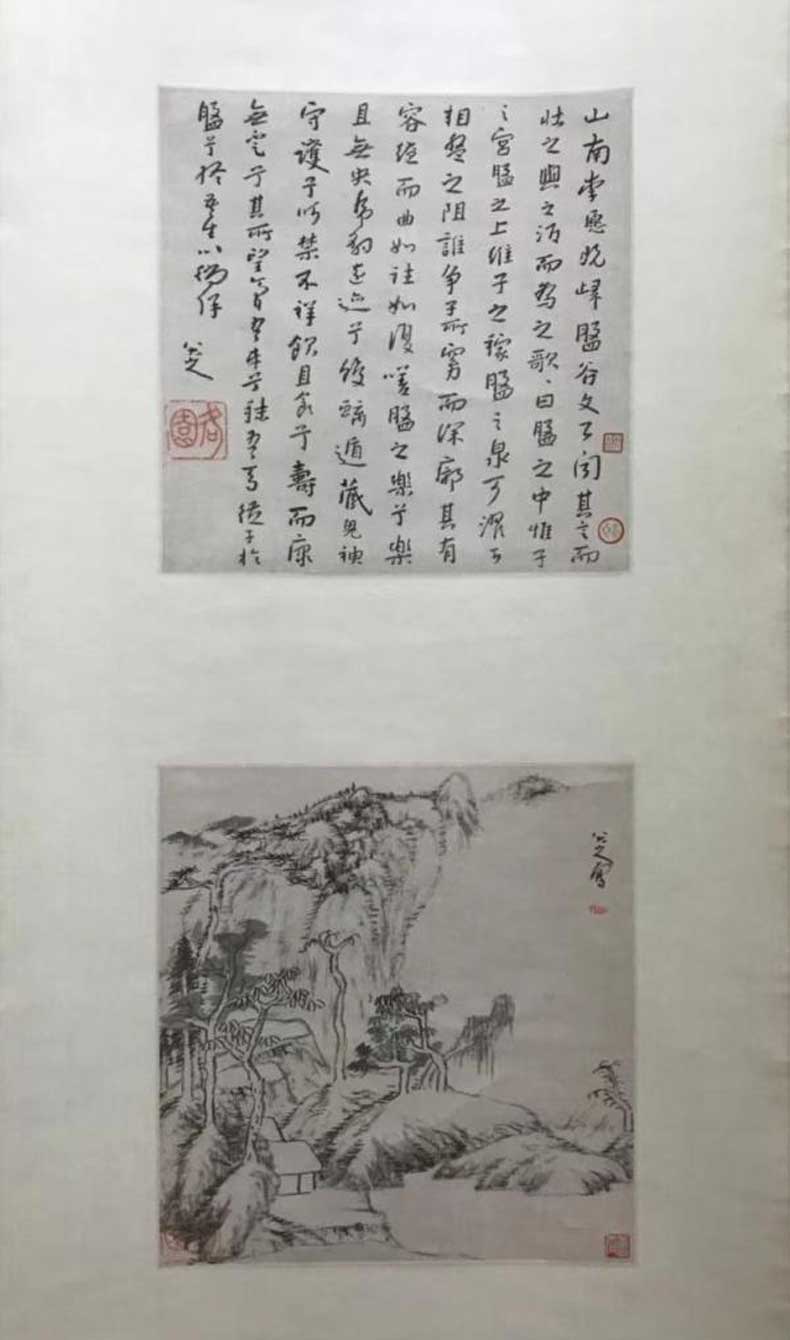 山南李愿歸盤谷文公聞其言而
壯之與之酒而為之歌曰盤之中惟子
之宮盤之上維子之稼盤之泉可濯可
相盤之阻誰爭子所窈而深廓其有
容繚而曲如往如復嗟盤之樂兮樂
且無央虎豹遠迹兮蛟龍遁藏鬼神
守護兮呵禁不祥飲且食兮壽而康
無不足兮其所望膏吾車兮秣吾馬從子於
盤兮終吾生以徜徉
八大山人
八大山人寫